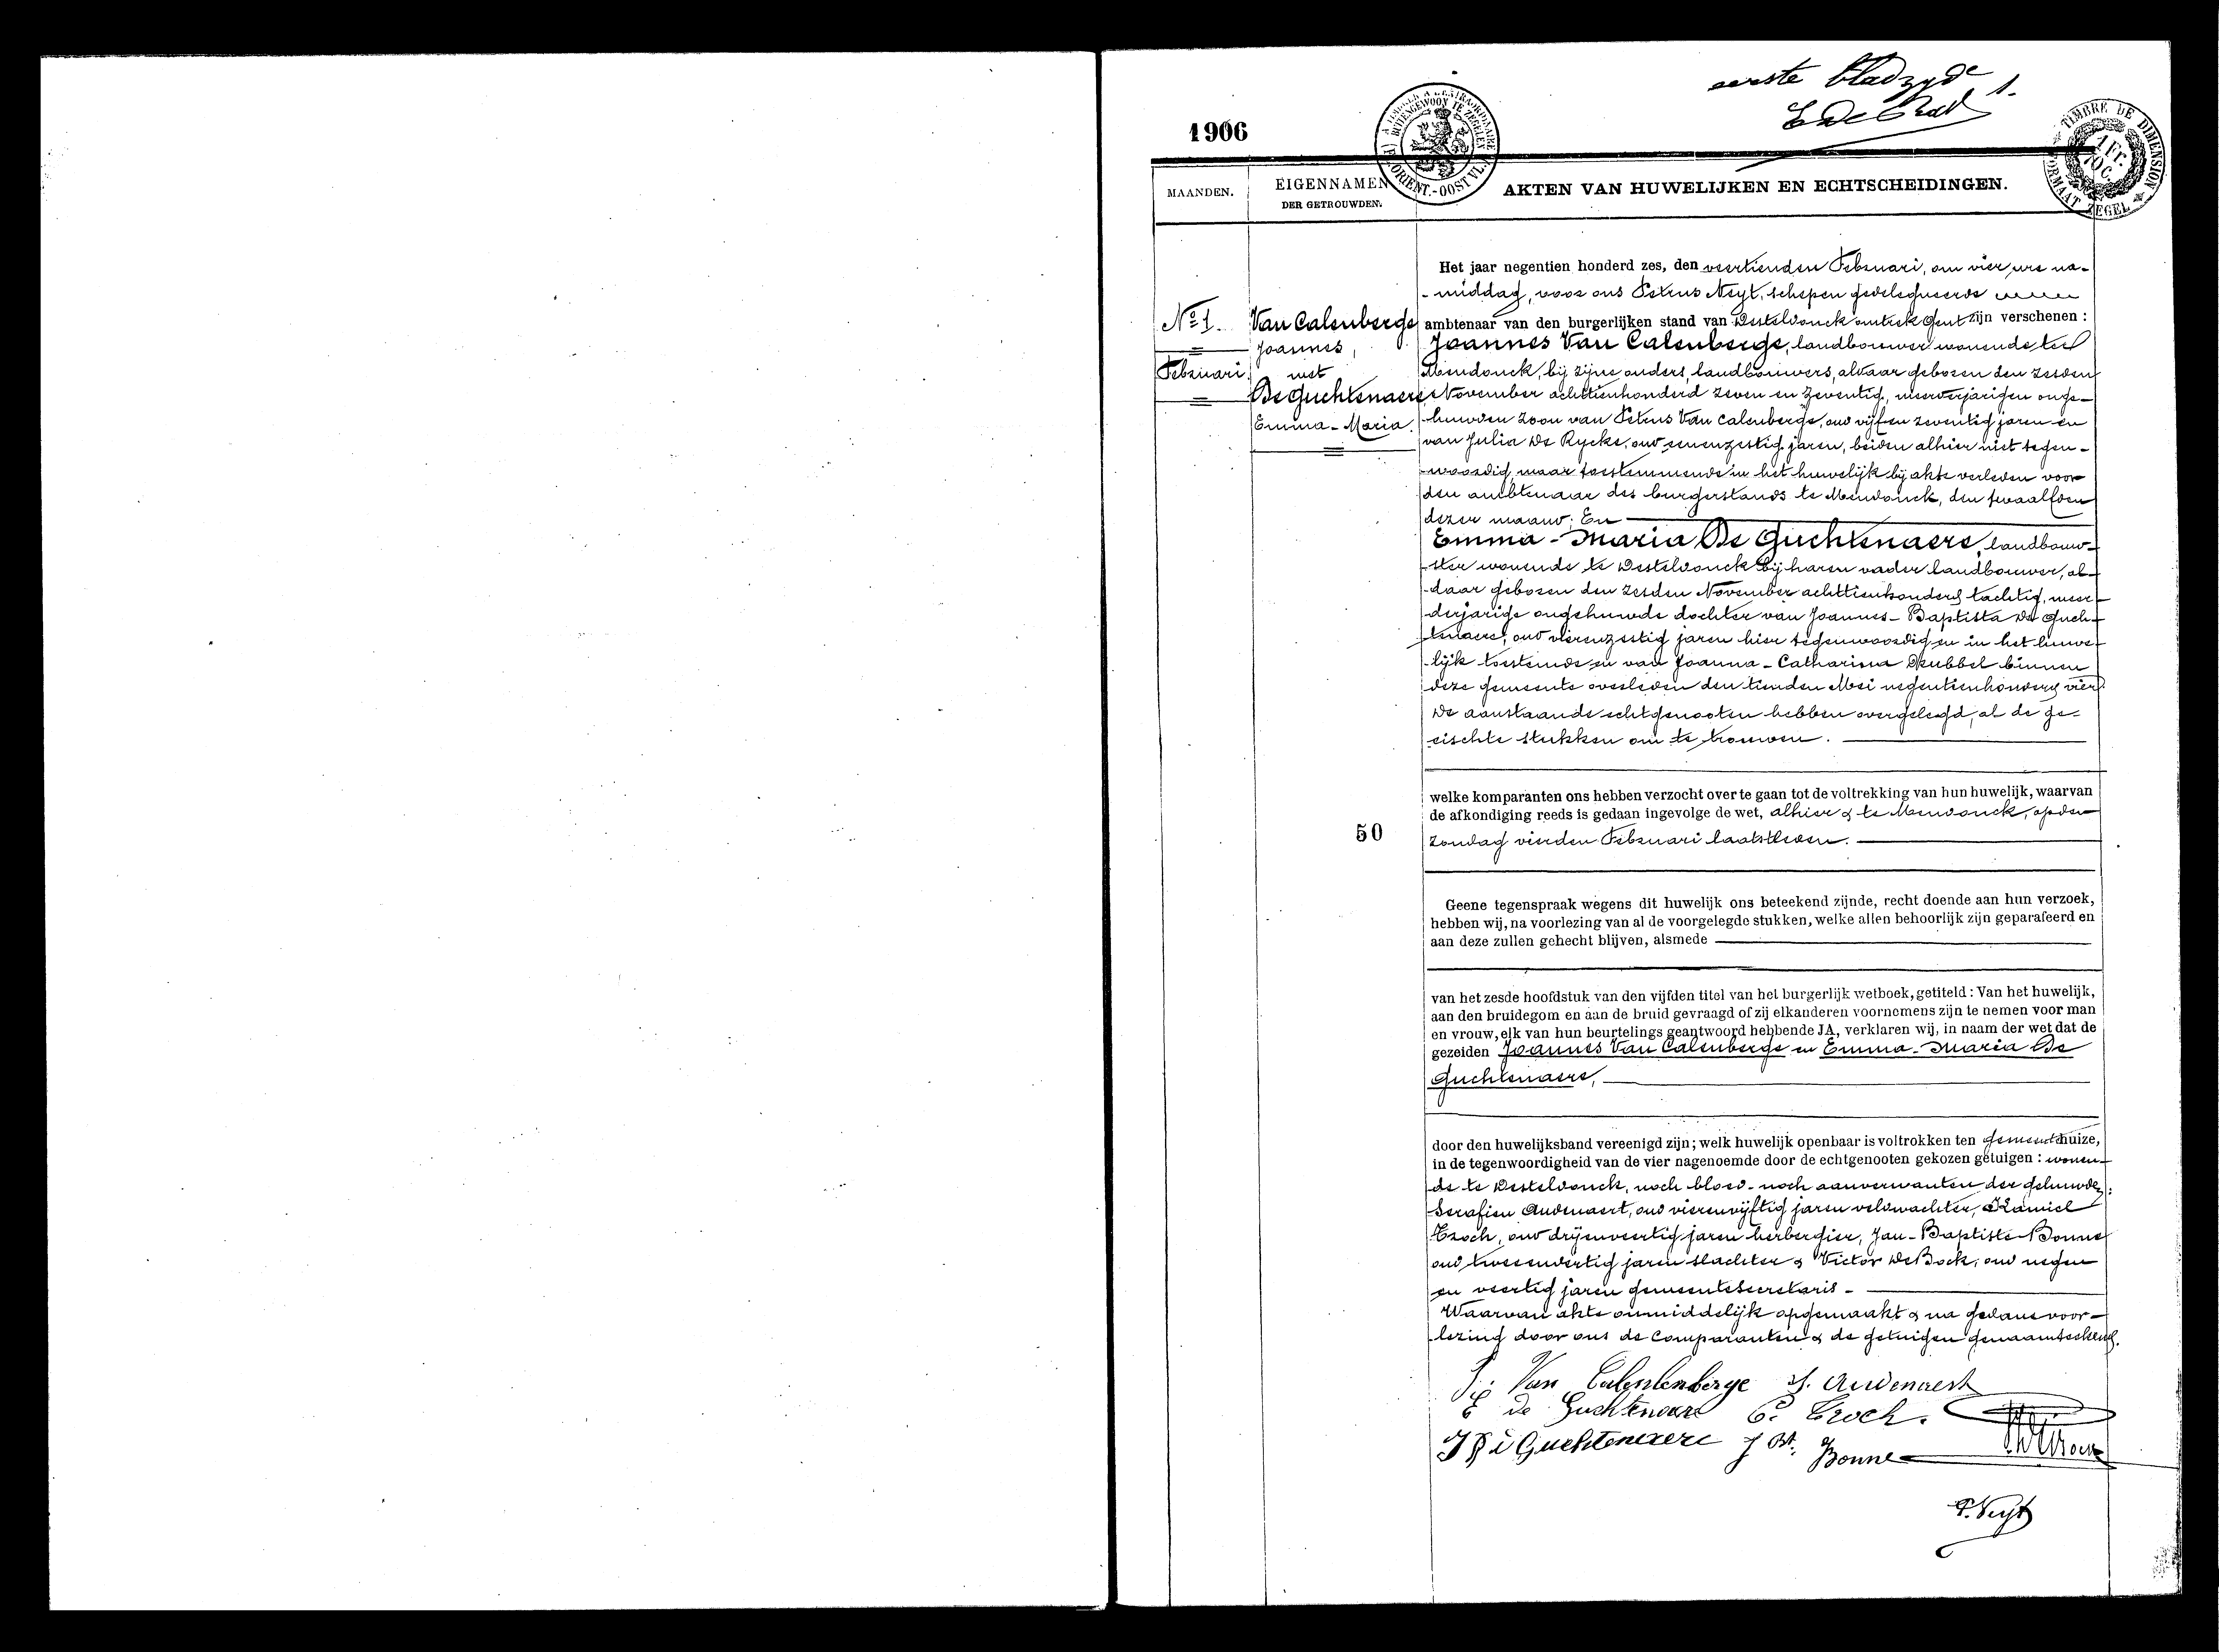 eerste bladzyde 1.
1906
A TIMBRER A L'EXTRAORDINAIRE
BUITENGEWOON TE ZEGELEN
FL. ORIENT.-OOST VL.
TIMBRE DE DIMENSION
1 Fr.
70 C.
FORMAAT ZEGEL
MAANDEN.
EIGENNAMEN
DER GETROUWDEN.
AKTEN VAN HUWELIJKEN EN ECHTSCHEIDINGEN.
No 1.
Februari
Van Calenberge
Joannes,
met
De Guchtenaere
Emma-Maria.
50
Het jaar negentien honderd zes, den veertienden Februari, om vier ure na-
-middag, voor ons Petrus Neyt, schepen gedelegueerde
ambtenaar van den burgerlijken stand van Desteldonck omtrek Gent zijn verschenen :
Joannes Van Calenberge, landbouwer wonende te
Mendonck, bij zijne ouders, landbouwers, aldaar geboren den zesden
November achttienhonderd zeven en zeventig, meerderjarigen onge-
huwden zoon van Petrus Van Calenberge, oud vijf en zeventig jaren en
van Julia De Rycke, oud eenenzestig jaren, beiden alhier niet tegen-
-woordig, maar toestemmende in het huwelijk bij akte verleden voor
den ambtenaar des burgerstands te Mendonck, den twaalfden
dezer maand; En
Emma-Maria De Guchtenaere, landbouw-
-ster wonende te Desteldonck bij haren vader landbouwer, al-
-daar geboren den zesden November achttienhonderd tachtig, meer-
derjarige ongehuwde dochter van Joannes-Baptista De Guch-
tenaere, oud vierenzestig jaren hier tegenwoordig en in het huwe-
-lijk toestemde en van Joanna-Catharina Dhubbel binnen
deze gemeente overleden den tienden Mei negentienhonderd vier.
De aanstaande echtgenooten hebben overgelegd, al de ge-
eischte stukken om te trouwen.
welke komparanten ons hebben verzocht over te gaan tot de voltrekking van hun huwelijk, waarvan
de afkondiging reeds is gedaan ingevolge de wet, alhier & te Mendonck, op den
zondag vierden Februari laatstleden.
Geene tegenspraak wegens dit huwelijk ons beteekend zijnde, recht doende aan hun verzoek,
hebben wij, na voorlezing van al de voorgelegde stukken, welke allen behoorlijk zijn geparafeerd en
aan deze zullen gehecht blijven, alsmede
van het zesde hoofdstuk van den vijfden titel van het burgerlijk wetboek, getiteld : Van het huwelijk,
aan den bruidegom en aan de bruid gevraagd of zij elkanderen voornemens zijn te nemen voor man
en vrouw, elk van hun beurtelings geantwoord hebbende JA, verklaren wij, in naam der wet dat de
gezeiden Joannes Van Calenberge en Emma-Maria De
Guchtenaere,
door den huwelijksband vereenigd zijn; welk huwelijk openbaar is voltrokken ten gemeentehuize,
in de tegenwoordigheid van de vier nagenoemde door de echtgenooten gekozen getuigen : wonen-
de te Desteldonck, noch bloed- noch aanverwanten der gehuwden:
Serafien Audenaert, oud vierenvijftig jaren veldwachter, Kamiel
Troch, oud drijenveertig jaren herbergier, Jan-Baptiste Bonne
oud tweeenveertig jaren slachter & Victor De Bock, oud negen
en veertig jaren gemeentesecretaris -
Waarvan akte onmiddelijk opgemaakt & na gedane voor-
lezing door ons de comparanten & de getuigen genaamteekend.
Van Calenberge S. Audenaert
E de Guchtenaere C. Troch.
Guchtenaere J Bt. Bonne
P. Neyt